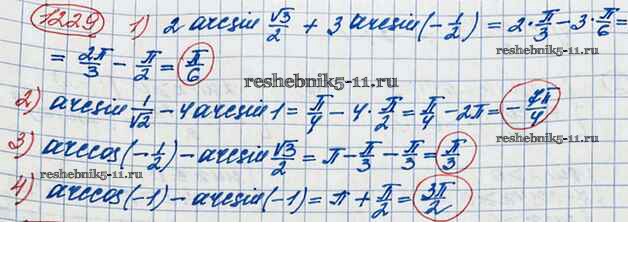 1229 1) 2 arcsin √3/2 + 3 arcsin(-1/2) = 2·π/3 - 3·π/6 =
= 2π/3 - π/2 = π/6
reshebnik5-11.ru
2) arcsin 1/√2 - 4 arcsin 1 = π/4 - 4·π/2 = π/4 - 2π = -7π/4
reshebnik5-11.ru
3) arccos(-1/2) - arcsin √3/2 = π - π/3 - π/3 = π/3
reshebnik5-11.ru
4) arccos(-1) - arcsin(-1) = π + π/2 = 3π/2
reshebnik5-11.ru